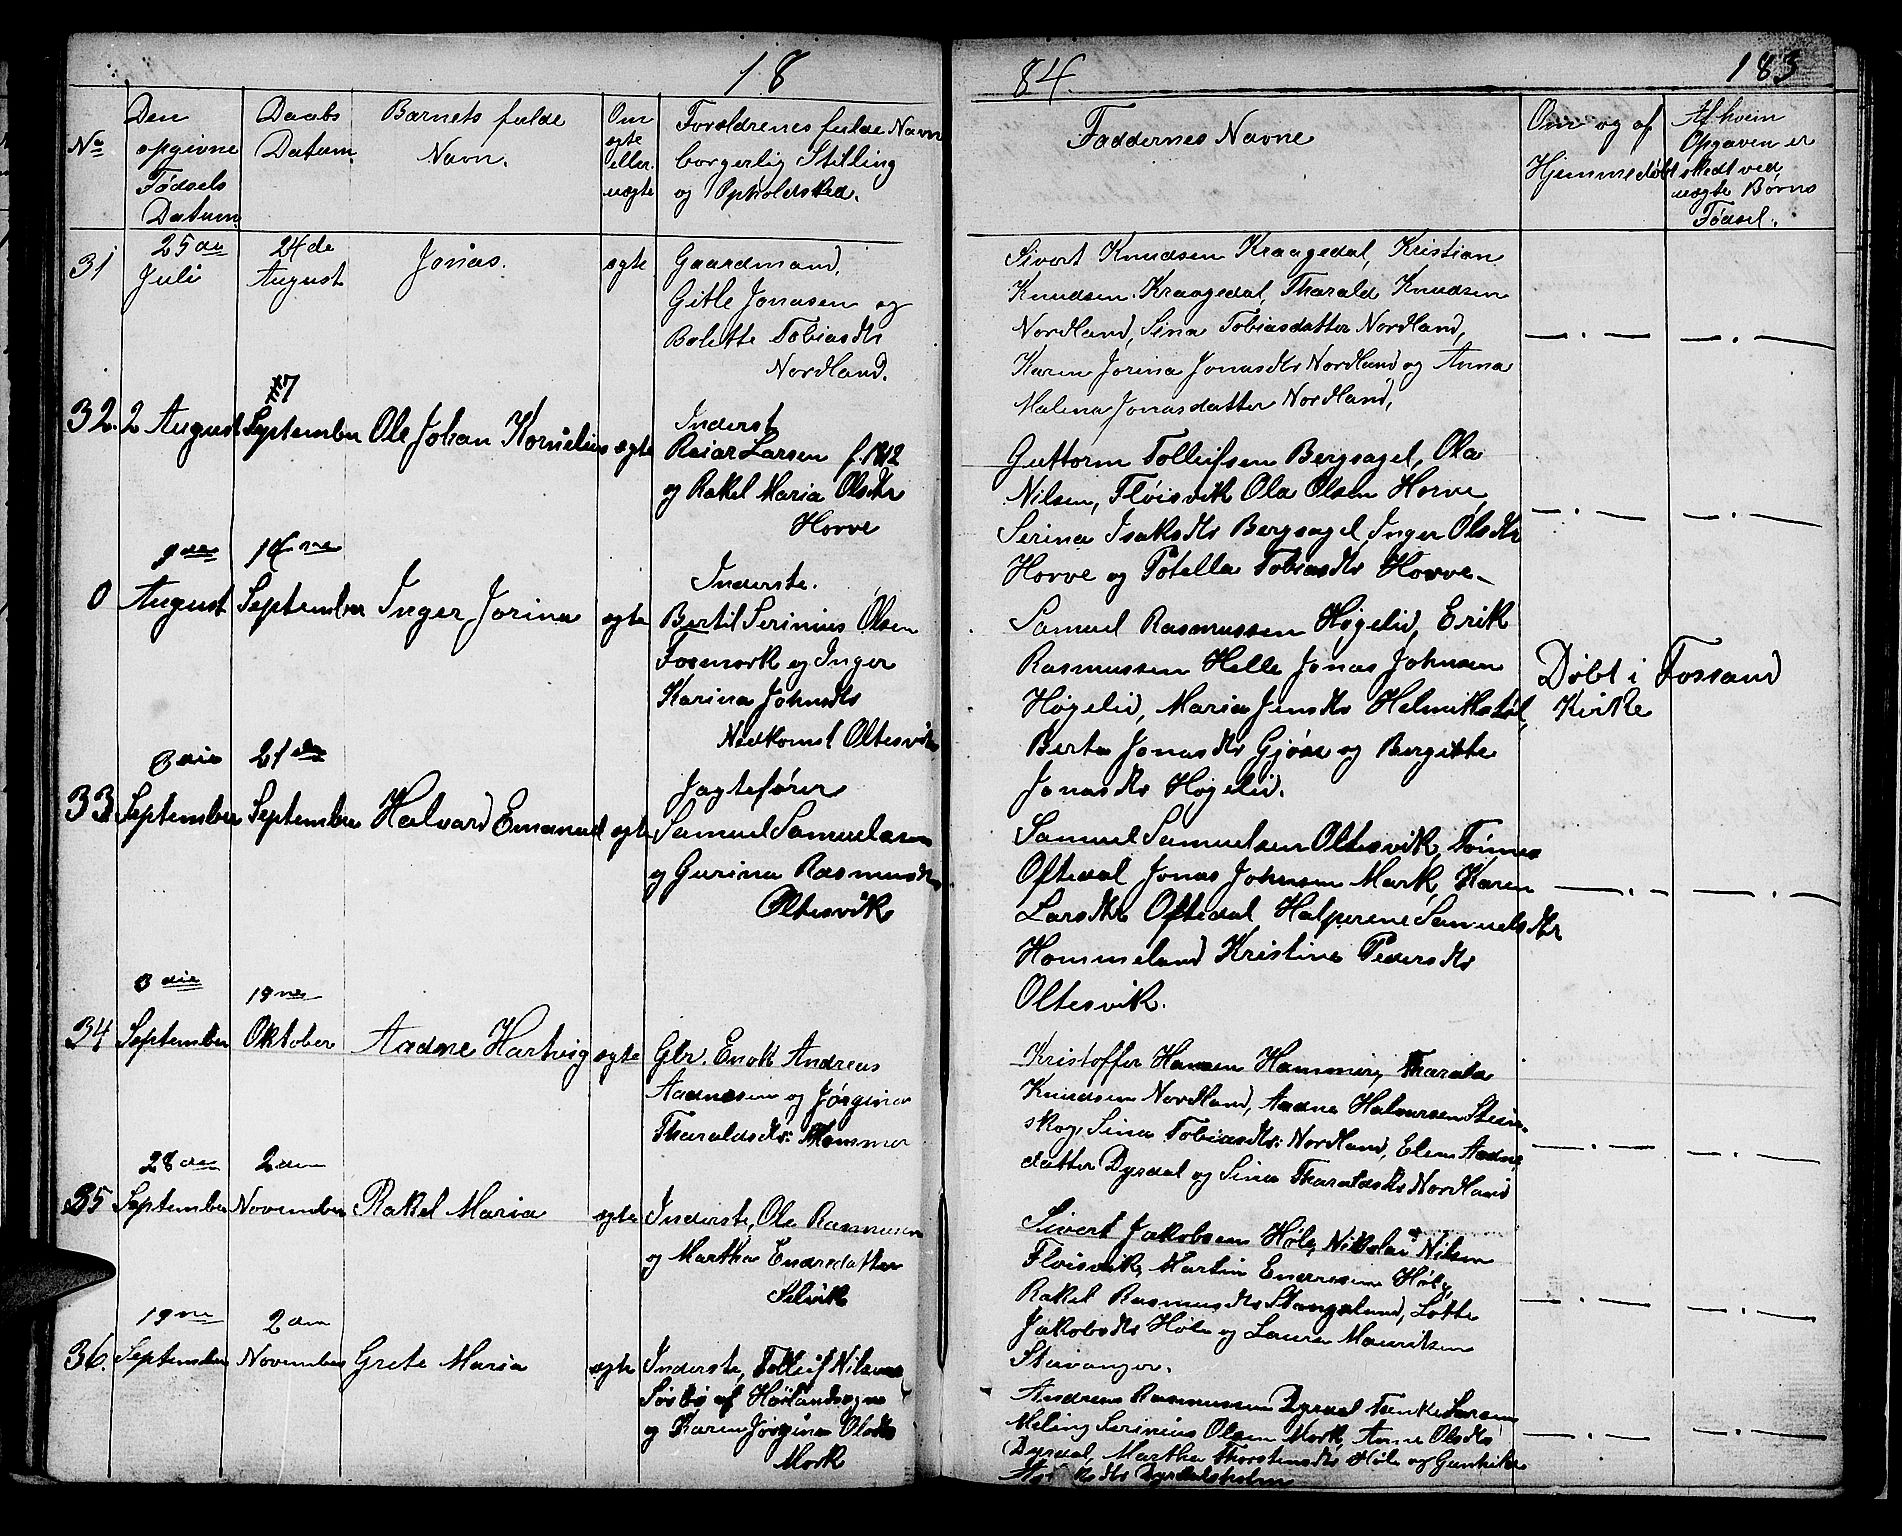 18
84.
183
No
Den opgivne Fødsels Datum
Daabs Datum
Barnets fulde Navn.
Om ægte eller uægte
Forældrenes fulde Navn borgerlig Stilling og Opholdsted.
Faddernes Navne
Om og af Hjemmedøbt
Af hvem Opgaven er skedt ved uægte Børns Fødsel.
31
25de Juli
24de August
Jonas.
ægte
Gaardmand,
Gitle Jonasen og
Bolette Tobiasdtr
Nordland.
Sivert Knudsen Kraagedal, Kristian
Knudsen Kraagedal, Tharald Knudsen
Nordland, Sina Tobiasdatter Nordland,
Karen Jorina Jonasdtr Nordland og Anna
Malena Jonasdatter Nordland,
32.
2 August
7 September
Ole Johan Kornelius
ægte
Inderst
Reiar Larsen
og Rakel Maria Olsdtr
Horve
Guttorm Tolleifsen Bergsagel, Ola
Nilsen, Fløisvik Ola Olsen Horve,
Serina Isaksdtr Bergsagel, Inger Olsdtr
Horve og Potella Tobiasdtr Horve
0
9de August
14ne September
Inger Jorina
ægte
Inderste.
Bertil Serinius Olsen
Fosmork og Inger
Karina Johnsdtr
Nedkomst Oltesvik
Samuel Rasmussen Høgelid, Erik
Rasmussen Helle Jonas Johnsen
Høgelid, Maria Jensdtr Helmikstøl,
Berta Jonasdtr Gjøse og Bergitte
Jonasdtr Høgelid.
Døbt i Fossand
Kirke
33
3die September
21de September
Halvard Emanuel
ægte
Jagtefører
Samuel Samuelsen
og Gurina Rasmusdtr
Oltesvik
Samuel Samuelsen Oltesvik, Tønnes
Oftedal Jonas Johnsen Mark, Karen
Larsdtr Oftedal Halperene Samuelsdtr
Hommeland Kristine Pedersdtr
Oltesvik.
34
3die September
19ne Oktober
Aadne Hartvig
ægte
Gbr. Enok Andreas
Aadnesen og Jørgina
Tharaldsdtr: Hommer
Kristoffer Hansen Hammer, Tharald
Knudsen Nordland, Aadne Halvorsen Stein-
skog, Sina Tobiasdtr: Nordland, Elen Aadne
datter Dysdal og Sina Tharaldsdtr Nordland
35
28de September
2den November
Rakel Maria
ægte
Inderste, Ole Rasmusen
og Martha Endredatter
Selvik
Sivert Jakobsen Høle, Nikolai Nilsen
Fløisvik, Martin Endresen Høle,
Rakel Rasmusdtr Stangeland, Lotte
Jakobsdtr Høle og Laura Mauritsen
Stavanger.
36.
19ne September
2den November
Grete Maria
ægte
Inderste, Tolleif Nilsen
Sørbø af Høilandsogn
og Karen Jørgine Olsdtr
Mork
Andreas Rasmussen Dysdal Larsen
Meling Serinius Olsen Mork, Anne Olsdtr
Dysdal, Martha Thorstensdtr Høle og Gunhild
Dysdalsholm